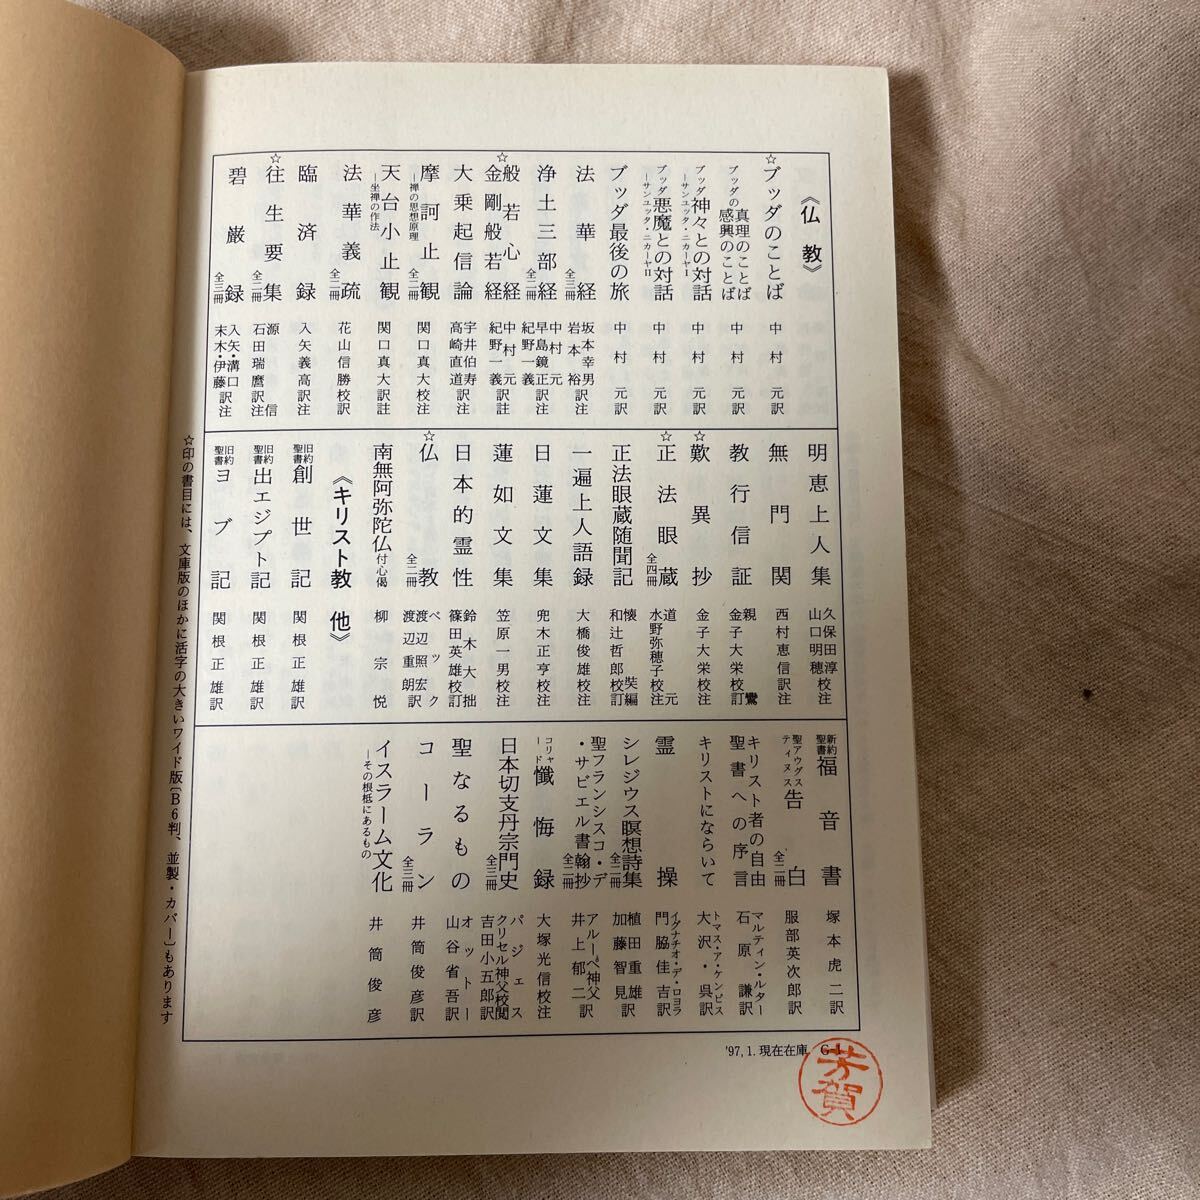 《仏教》
☆ブッダのことば 中村元訳
ブッダの 真理のことば 感興のことば 中村元訳
ブッダ 神々との対話 ―サンユッタ・ニカーヤI 中村元訳
ブッダ 悪魔との対話 ―サンユッタ・ニカーヤII 中村元訳
ブッダ最後の旅 中村元訳
法華経 全三冊 坂本幸男 岩本裕訳注
浄土三部経 全二冊 中村元 早島鏡正 紀野一義訳注
☆般若心経 金剛般若経 中村元 紀野一義訳註
大乗起信論 宇井伯寿 高崎直道訳注
摩訶止観 ―禅の思想原理 全二冊 関口真大校注
天台小止観 ―坐禅の作法 関口真大訳註
法華義疏 全二冊 花山信勝校訳
臨済録 入矢義高訳注
☆往生要集 全二冊 源信 石田瑞麿訳注
碧巌録 全三冊 入矢・溝口 末木・伊藤訳注
明恵上人集 久保田淳 山口明穂校注
無門関 西村恵信訳注
教行信証 親鸞 金子大栄校訂
☆歎異抄 金子大栄校注
☆正法眼蔵 全四冊 道元 水野弥穂子校注
正法眼蔵随聞記 懐奘編 和辻哲郎校訂
一遍上人語録 大橋俊雄校注
日蓮文集 兜木正亨校注
蓮如文集 笠原一男校注
日本的霊性 鈴木大拙 篠田英雄校訂
☆仏教 全二冊 ベック 渡辺照宏 渡辺重朗訳
南無阿弥陀仏 付心偈 柳宗悦
《キリスト教 他》
旧約聖書 創世記 関根正雄訳
旧約聖書 出エジプト記 関根正雄訳
旧約聖書 ヨブ記 関根正雄訳
新約聖書 福音書 塚本虎二訳
聖アウグスティヌス 告白 全二冊 服部英次郎訳
キリスト者の自由 聖書への序言 マルティン・ルター 石原謙訳
キリストにならいて トマス・ア・ケンピス 大沢・呉訳
霊操 イグナチオ・デ・ロヨラ 門脇佳吉訳
シレジウス瞑想詩集 全二冊 植田重雄 加藤智見訳
聖フランシスコ・デ・サビエル書翰抄 全二冊 アルーペ神父 井上郁二訳
コリャード 懺悔録 大塚光信校注
日本切支丹宗門史 全三冊 パジェス クリセル神父校閲 吉田小五郎訳
聖なるもの オットー 山谷省吾訳
コーラン 全三冊 井筒俊彦訳
イスラーム文化 ―その根柢にあるもの 井筒俊彦
☆印の書目には、文庫版のほかに活字の大きいワイド版〔B6判、並製・カバー〕もあります
'97,1.現在在庫
芳賀